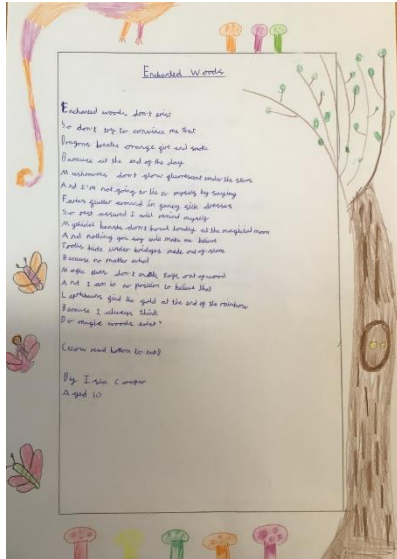 Enchanted Woods
Enchanted woods don't exist
So don't try to convince me that
Dragons breathe orange fire and smoke
Because at the end of the day
Mushrooms don't glow fluorescent under the stars
And I'm not going to lie to myself by saying
Fairies flutter around in fancy silk dresses
So rest assured I will remind myself
Mythical beasts don't howl loudly at the magical moon
And nothing you say will make me believe
Trolls hide under bridges made out of stone
Because no matter what
Magic elves don't make toys out of wood
And I am in no position to believe that
Leprechauns find the gold at the end of the rainbow
Because I always think
Do magic woods exist?
(Now read bottom to top)
By Isla Cooper
Aged 10